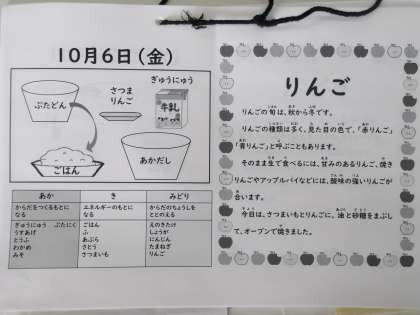 10月6日(金)
ぎゅうにゅう
さつま
りんご
牛乳
ぶたどん
ごはん
あかだし
あか
き
みどり
からだをつくるもとに
なる
エネルギーのもとに
なる
からだのちょうしを
ととのえる
ぎゅうにゅう ぶたにく
うすあげ
とうふ
わかめ
みそ
ごはん
ふ
あぶら
さとう
さつまいも
えのきたけ
しょうが
にんじん
たまねぎ
りんご
りんご
りんごの旬は、秋から冬です。
りんごの種類は多く、見た目の色で、「赤りんご」
「青りんご」と呼ぶこともあります。
そのまま生で食べるには、甘みのあるりんご、焼き
りんごやアップルパイなどには、酸味の強いりんごが
合います。
今日は、さつまいもとりんごに、油と砂糖をまぶし
て、オーブンで焼きました。